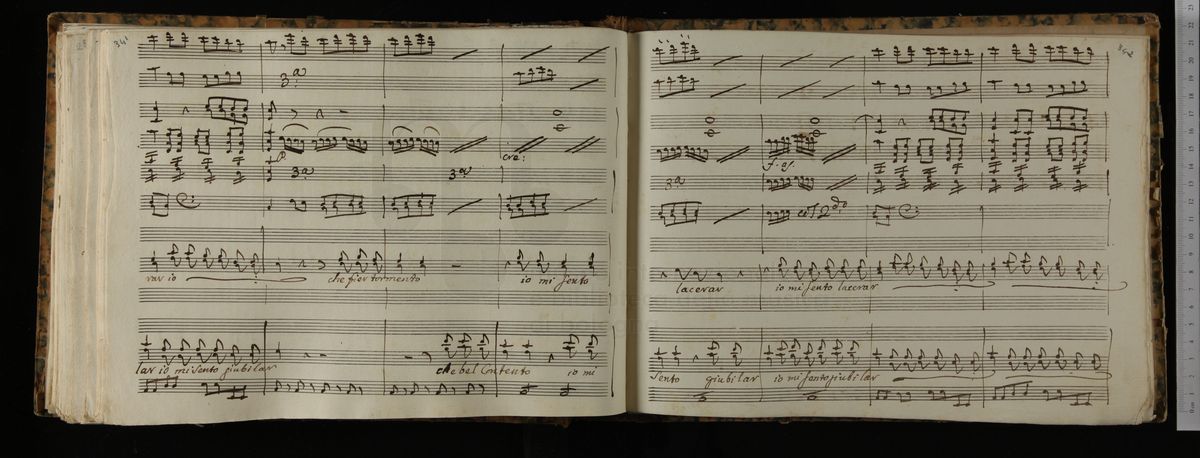 341
3ª
P
cre:
3ª
3ª
var io che fier tormento io mi sento
lar io mi sento jiubilar che bel Contento io mi
342
f. gs.
3ª
col 2do
lacerar io mi sento lacerar
sento giubilar io mi sento jiubilar